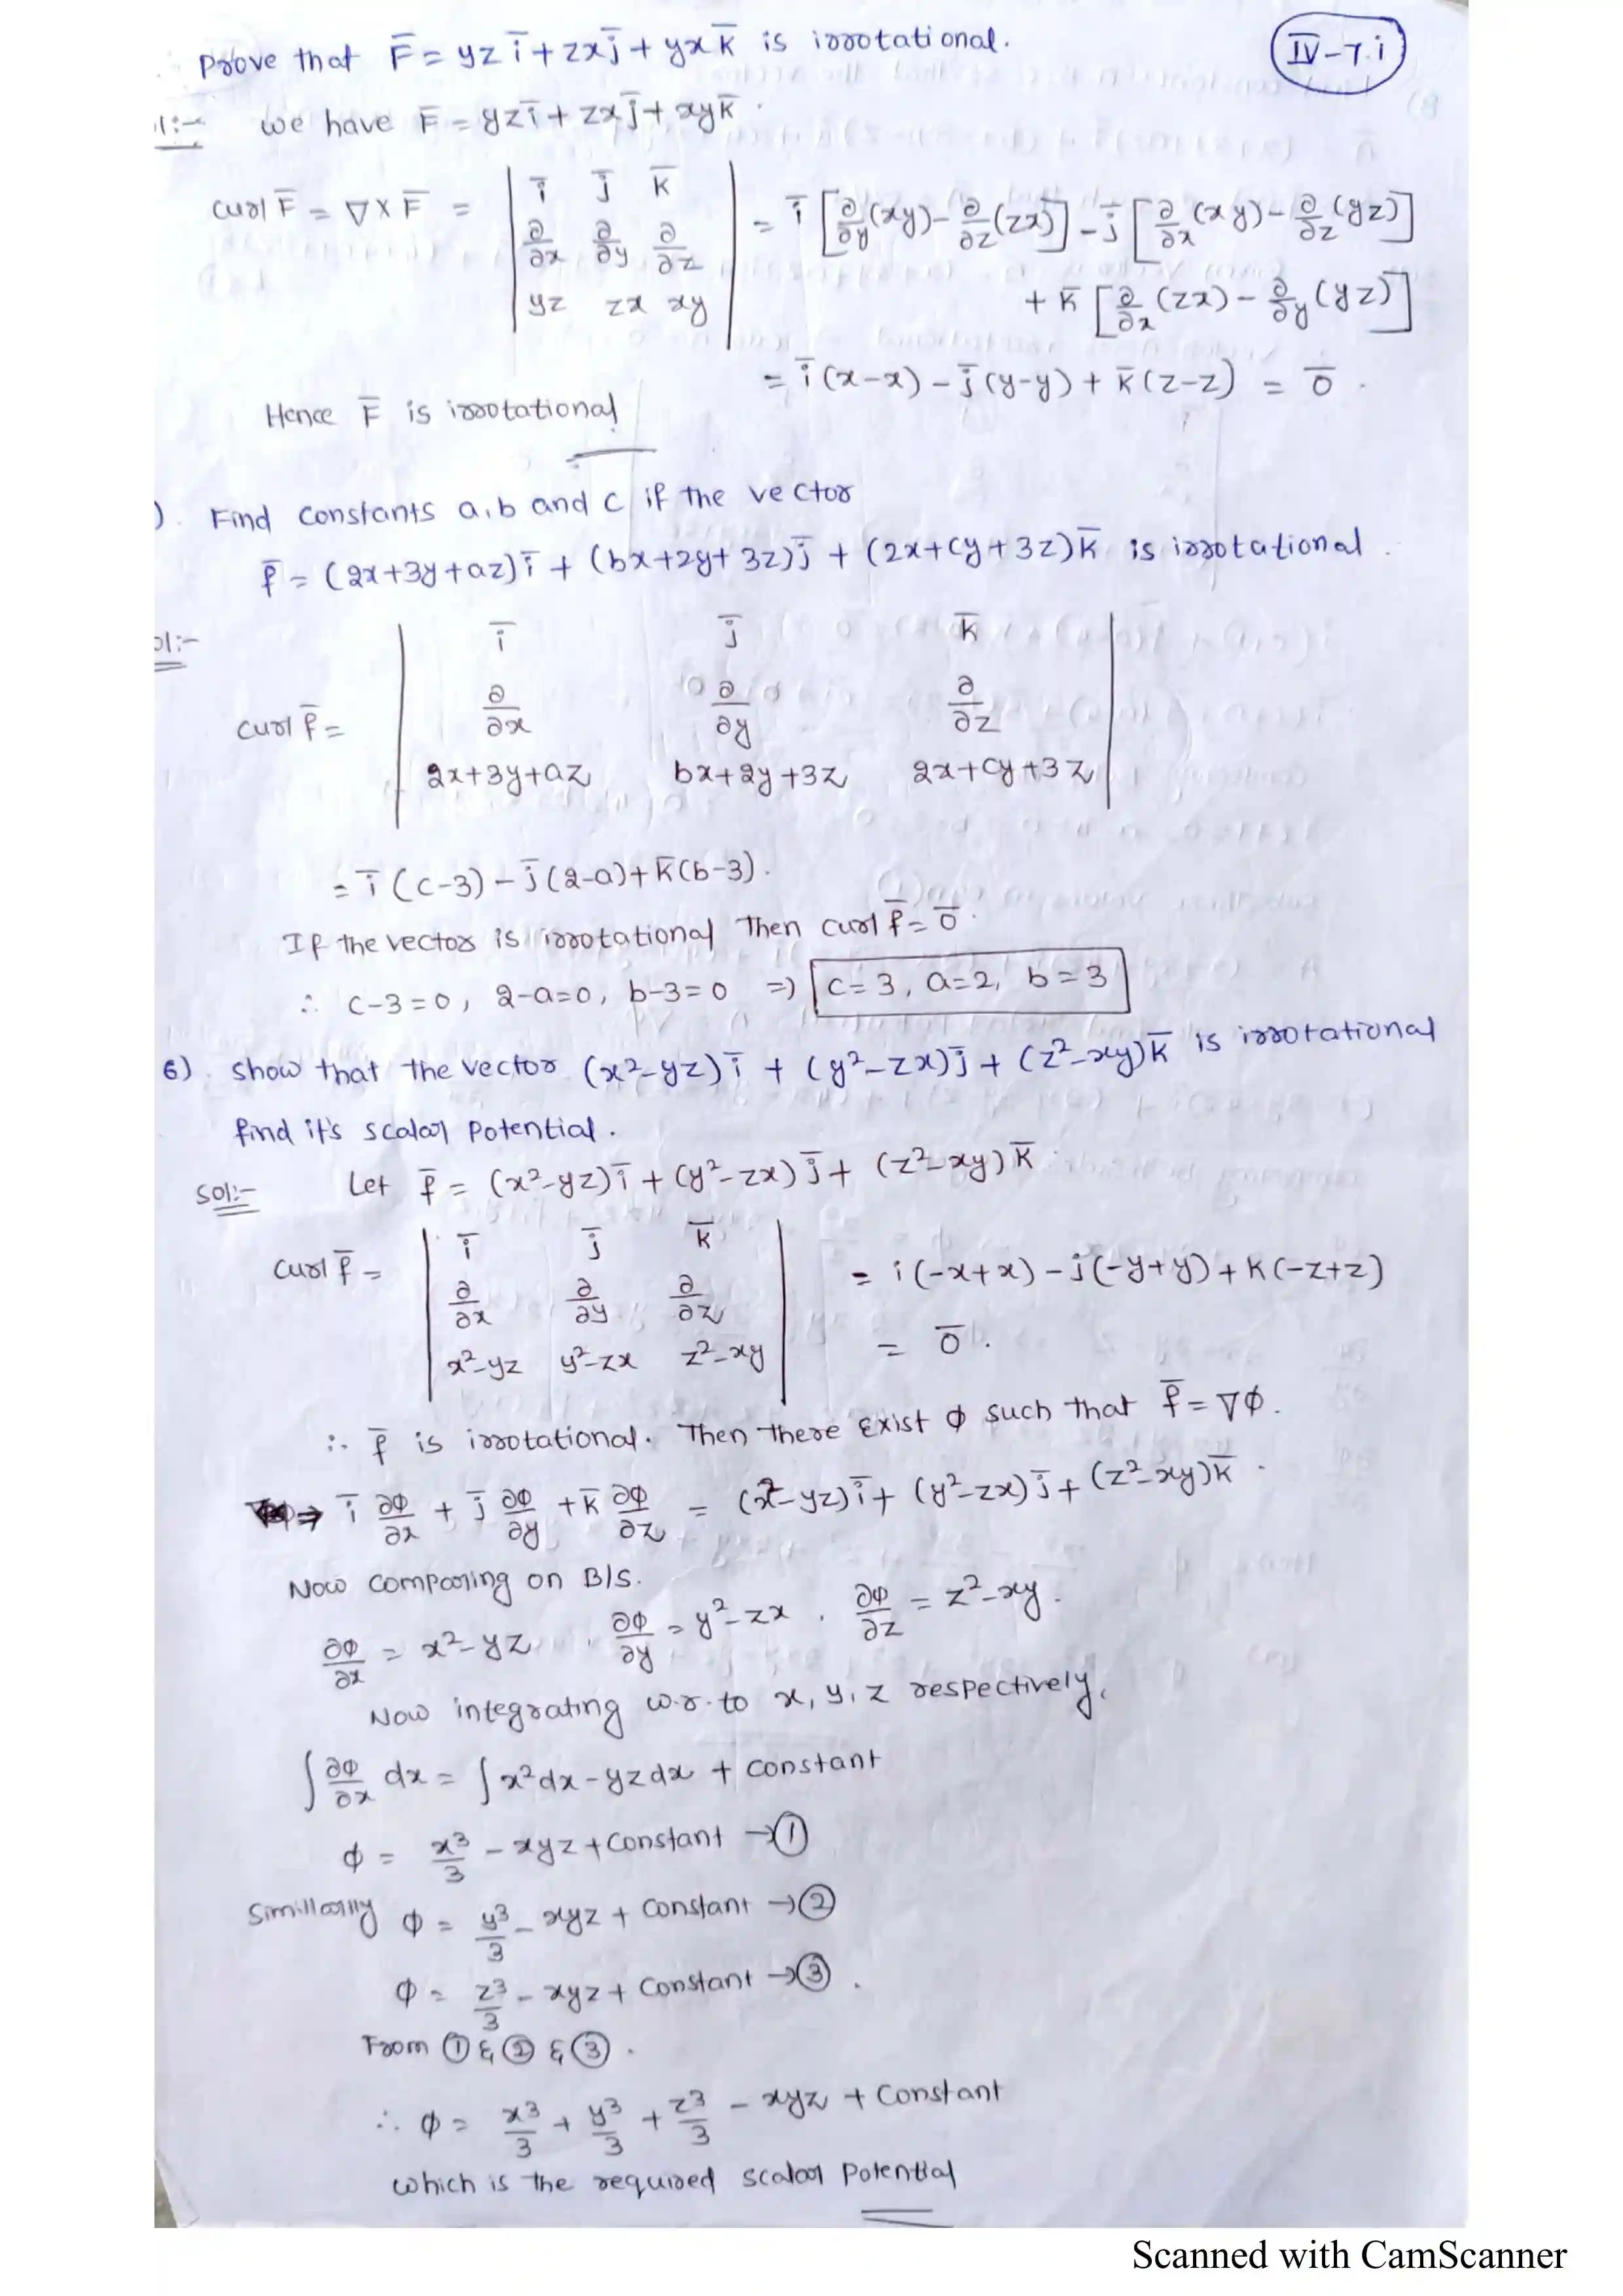 Prove that F̄ = yz ī + zx j̄ + yx k̄ is irrotational.
IV-7.i
l:- we have F̄ = yz ī + zx j̄ + xy k̄.
curl F̄ = ∇ × F̄ = | ī j̄ k̄ | = ī [∂/∂y (xy) - ∂/∂z (zx)] - j̄ [∂/∂x (xy) - ∂/∂z (yz)]
| ∂/∂x ∂/∂y ∂/∂z |
| yz zx xy | + k̄ [∂/∂x (zx) - ∂/∂y (yz)]
= ī (x-x) - j̄ (y-y) + k̄ (z-z) = 0̄.
Hence F̄ is irrotational
). Find constants a, b and c if the vector
f̄ = (2x+3y+az) ī + (bx+2y+3z) j̄ + (2x+cy+3z) k̄ is irrotational.
ol:-
curl f̄ = | ī j̄ k̄ |
| ∂/∂x ∂/∂y ∂/∂z |
| 2x+3y+az bx+2y+3z 2x+cy+3z |
= ī (c-3) - j̄ (2-a) + k̄ (b-3).
If the vector is irrotational Then curl f̄ = 0̄.
∴ c-3=0, 2-a=0, b-3=0 => c=3, a=2, b=3
6). Show that the vector (x²-yz) ī + (y²-zx) j̄ + (z²-xy) k̄ is irrotational
find it's scalar potential.
Sol:- Let f̄ = (x²-yz) ī + (y²-zx) j̄ + (z²-xy) k̄
curl f̄ = | ī j̄ k̄ | = i(-x+x) - j(-y+y) + k(-z+z)
| ∂/∂x ∂/∂y ∂/∂z |
| x²-yz y²-zx z²-xy | = 0̄.
∴ f̄ is irrotational. Then there exist ϕ such that f̄ = ∇ϕ.
⇒ ī ∂ϕ/∂x + j̄ ∂ϕ/∂y + k̄ ∂ϕ/∂z = (x²-yz) ī + (y²-zx) j̄ + (z²-xy) k̄.
Now comparing on B/s.
∂ϕ/∂x = x²-yz, ∂ϕ/∂y = y²-zx, ∂ϕ/∂z = z²-xy.
Now integrating w.r.to x, y, z respectively,
∫ ∂ϕ/∂x dx = ∫ x²dx - yzdx + constant
ϕ = x³/3 - xyz + constant → ①
Simillarlly ϕ = y³/3 - xyz + constant → ②
ϕ = z³/3 - xyz + constant → ③.
From ① & ② & ③.
∴ ϕ = x³/3 + y³/3 + z³/3 - xyz + constant
which is the required scalar potential
Scanned with CamScanner